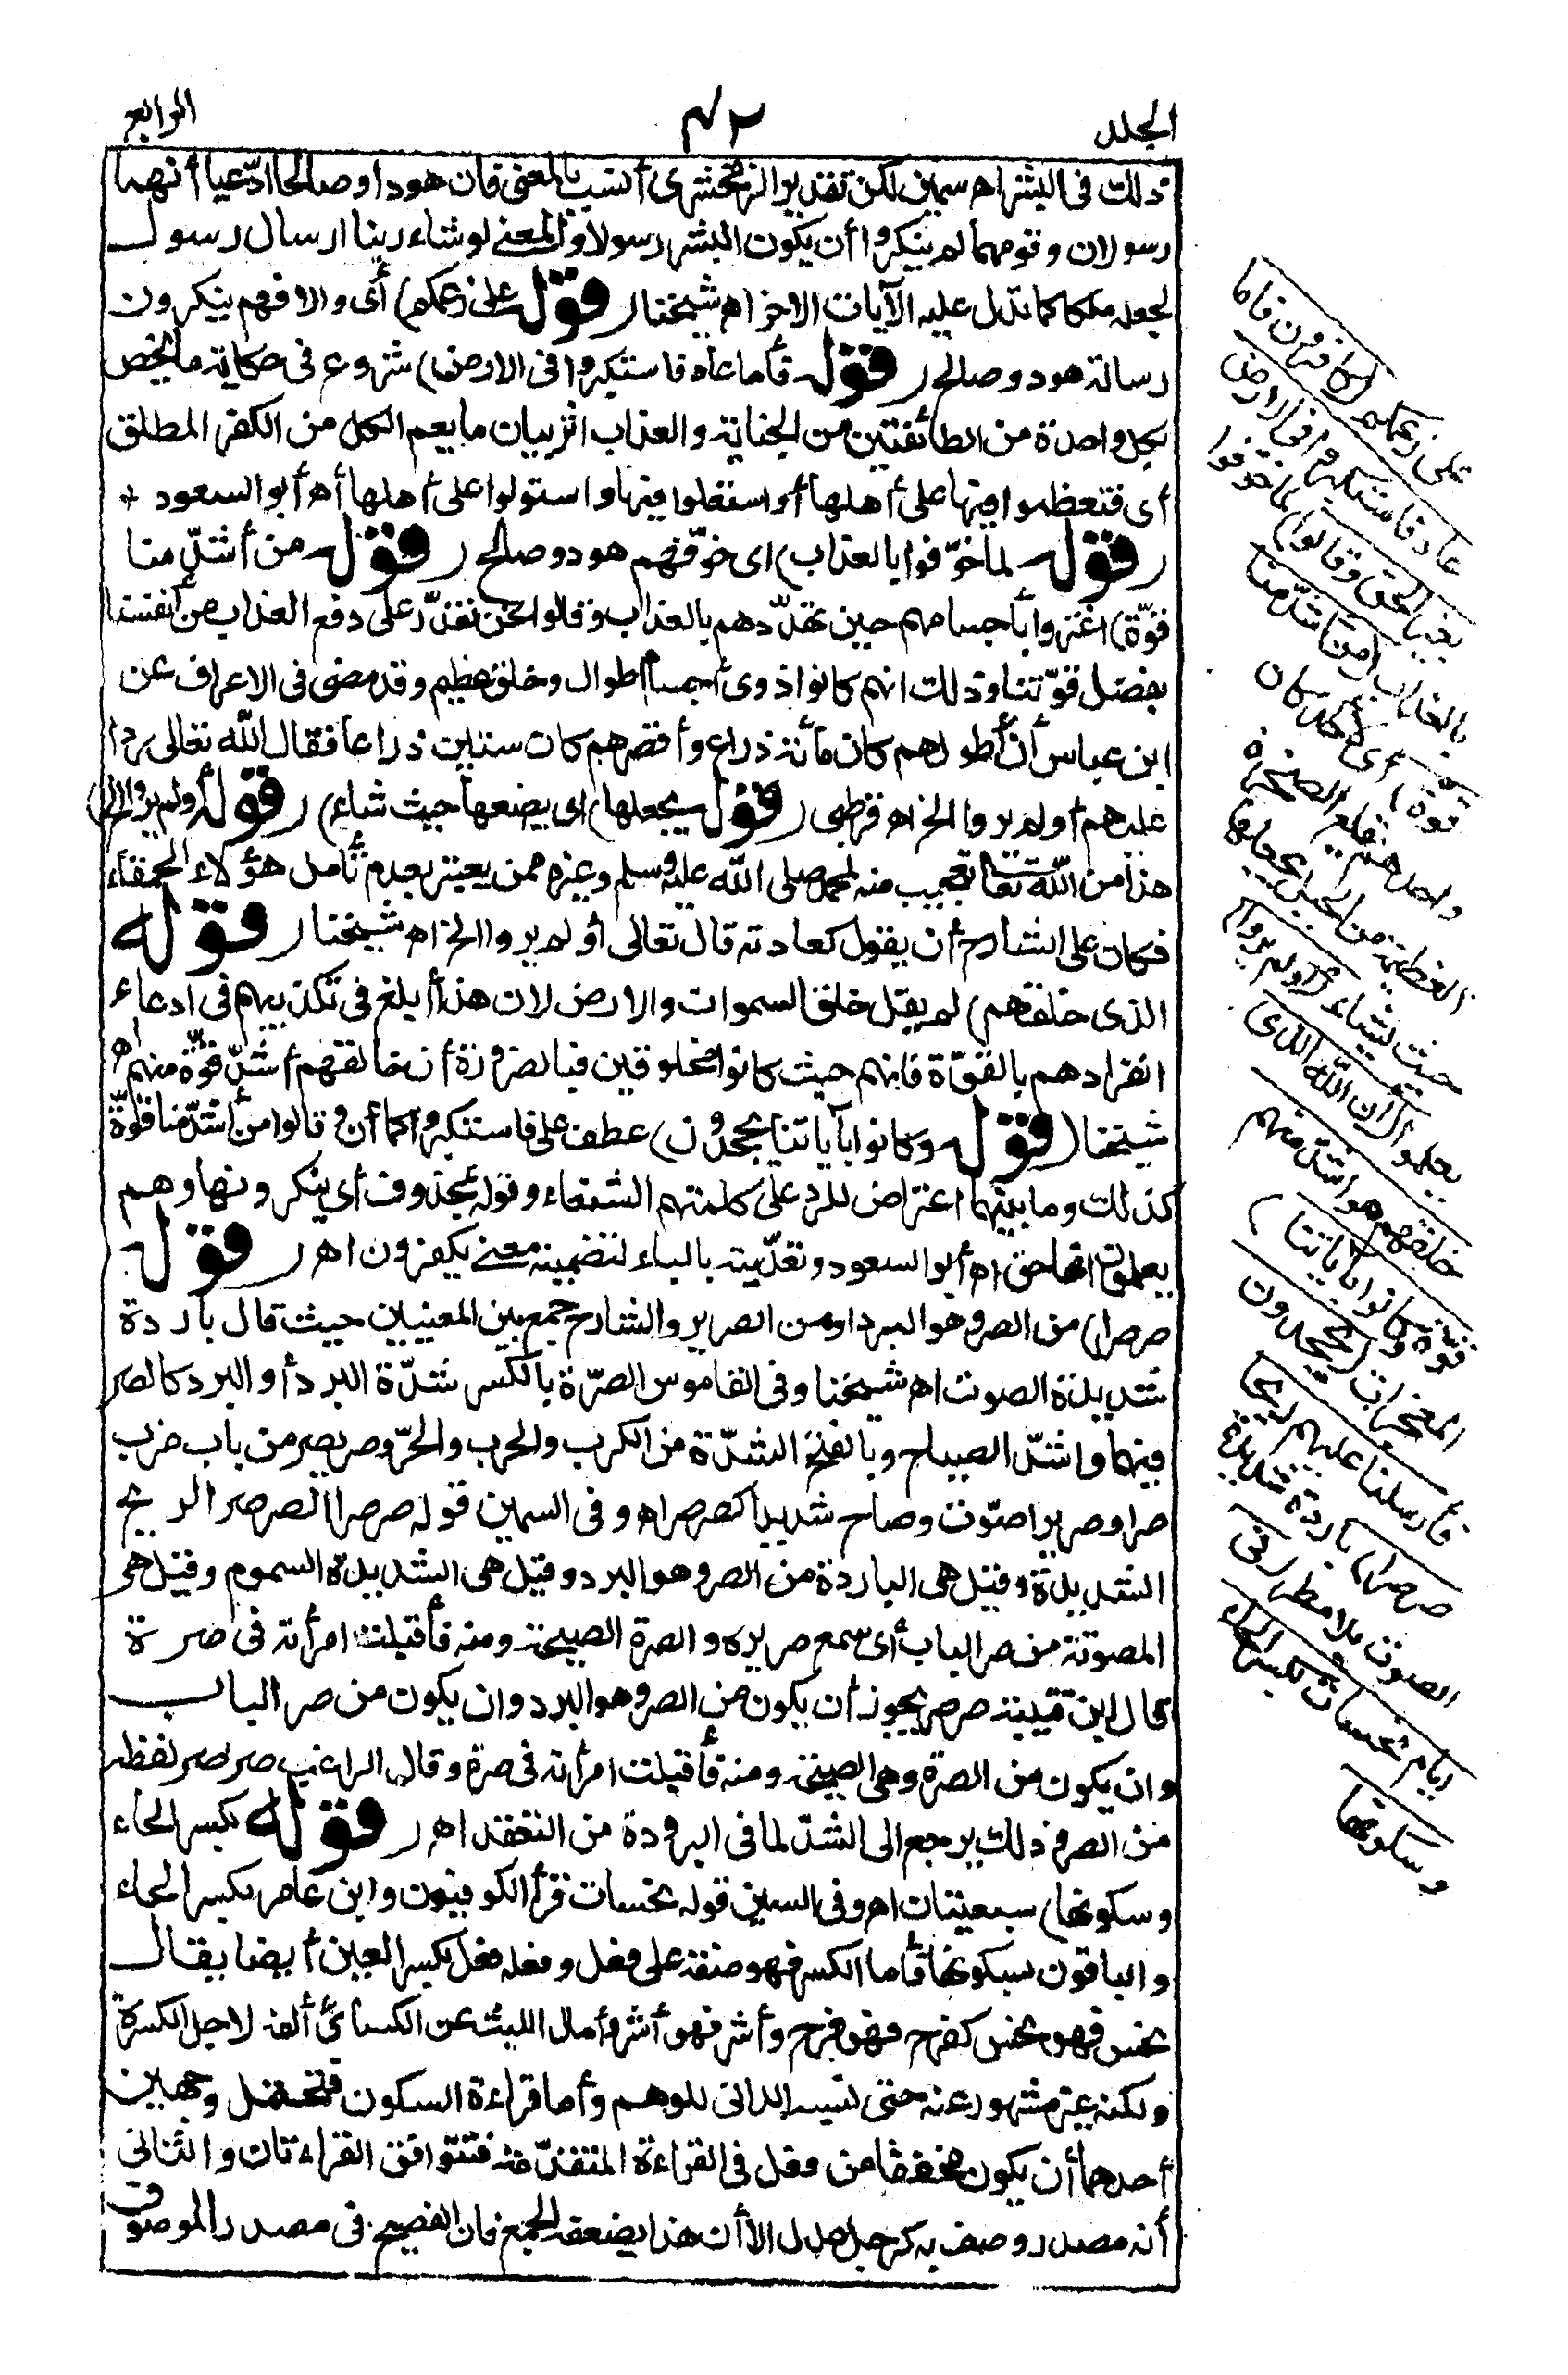 الجلد
٤٢
الرابع
ذلك في البشر اهـ سمين لكن تقدير الزمخشري أنسب بالمعنى فان هودا وصالحا ادّعيا أنهما
رسولان وقومهما لم ينكروا أن يكون البشر رسولا والمعنى لو شاء ربنا ارسال رسول
لجعله ملكا كما تدل عليه الآيات الاخر اهـ شيخنا (قوله على زعمكم) أى والا فهم ينكرون
رسالة هود وصالح (قوله فأما عاد فاستكبروا فى الارض) شروع فى حكاية ما يخص
بكل واحدة من الطائفتين من الجناية والعذاب اثر بيان ما يعم الكل من الكفر المطلق
أى فتعظموا فيها على أهلها أو استعلوا فيها واستولوا على أهلها أهـ أبو السعود
(قوله لما خوّفوا بالعذاب) اى خوّفهم هود وصالح (قوله من أشدّ منا
قوّة) اغتروا بأجسامهم حين تهدّدهم بالعذاب وقالوا نحن نقدر على دفع العذاب عن أنفسنا
بفضل قوّتنا وذلك انهم كانوا ذوى أجسام طوال وخلق عظيم وقد مضى فى الاعراف عن
ابن عباس أن أطولهم كان مائة ذراع وأقصرهم كان ستين ذراعا فقال الله تعالى ردا
عليهم أولم يروا الخ اهـ قرطبى (قوله يجعلها) اى يضعها حيث شاء) (قوله أولم يروا الخ)
هذا من الله تعالى تعجيب منه لمحمد صلى الله عليه وسلم وغيره ممن يعتبر بعدم تأمل هؤلاء الحمقاء
فكان على الشارح أن يقول كعادته قال تعالى أو لم يروا الخ اهـ شيخنا (قوله
الذى خلقهم) لم يقل خلق السموات والارض لان هذا أبلغ فى تكذيبهم فى ادعاء
انفرادهم بالقوّة فانهم حيث كانوا مخلوقين فبالضرورة أن خالقهم أشدّ قوّة منهم اهـ
شيخنا (قوله وكانوا بآياتنا يجحدون) عطف على فاستكبروا كما أن وقالوا من أشدّ منا قوّة
كذلك وما بينهما اعتراض للرد على كلمتهم الشنعاء وقوله يجحدون أى ينكرونها وهم
يعلمون انها حق اهـ أبو السعود وتعديته بالباء لتضمينه معنى يكفرون اهـ (قوله
صرصرا) من الصر وهو البرد او من الصرير والشارح جمع بين المعنيين حيث قال باردة
شديدة الصوت اهـ شيخنا وفى القاموس الصرّة بالكسر شدّة البرد أو البرد كالصر
فيهما واشدّ الصياح وبالفتح الشدّة من الكرب والحرب والحرّ وصر يصر من باب ضرب
صرا وصريرا صوّت وصاح شديدا كصرصر اهـ وفى السمين قوله صرصرا الصرصر الريح
الشديدة وقيل هى الباردة من الصر وهو البرد وقيل هى الشديدة السموم وقيل هى
المصوّتة من صر الباب أى سمع صريره والصرة الصيحة ومنه فأقبلت امرأته فى صرة
قال ابن قتيبة صرصر يجوز أن يكون من الصر وهو البرد وان يكون من صر الباب
وان يكون من الصرة وهى الصيحة ومنه فأقبلت امرأته فى صرة وقال الراغب صرصر لفظه
من الصر وذلك يرجع الى الشدّ لما فى البرودة من التعقد اهـ (قوله بكسر الحاء
وسكونها) سبعيتان اهـ وفى السمين قوله نحسات قرأ الكوفيون وابن عامر بكسر الحاء
والباقون بسكونها فأما الكسر فهو صفة على فعل وفعله فعل بكسر العين أيضا يقال
نحس فهو نحس كفرح فهو فرح وأشر فهو أشر وأمال الليث عن الكسائى ألفه لاجل الكسرة
ولكنه غير مشهور عنه حتى نسبه الدانى للوهم وأما قراءة السكون فتحتمل وجهين
أحدهما أن يكون مخففا من فعل فى القراءة المتقدّمة فتتوافق القراءتان والثانى
أنه مصدر وصف به كرجل عدل الا أن هذا يضعفه الجمع فان الفصيح فى مصدر الموصوف
على زعمكم (كافرون فاما
عاد فاستكبروا فى الارض
بغير الحق وقالوا) لما خوّفوا
بالعذاب (من أشدّ منا
قوّة) أى لا أحد كان
واحدهم يقلع الصخرة
العظيمة من الجبل يجعلها
حيث يشاء (أولم يروا)
يعلموا (أن الله الذى
خلقهم هو أشدّ منهم
قوّة وكانوا بآياتنا)
المعجزات (يجحدون
فأرسلنا عليهم ريحا
صرصرا) باردة شديدة
الصوت بلا مطر (فى
ايام نحسات) بكسر الحاء
وسكونها